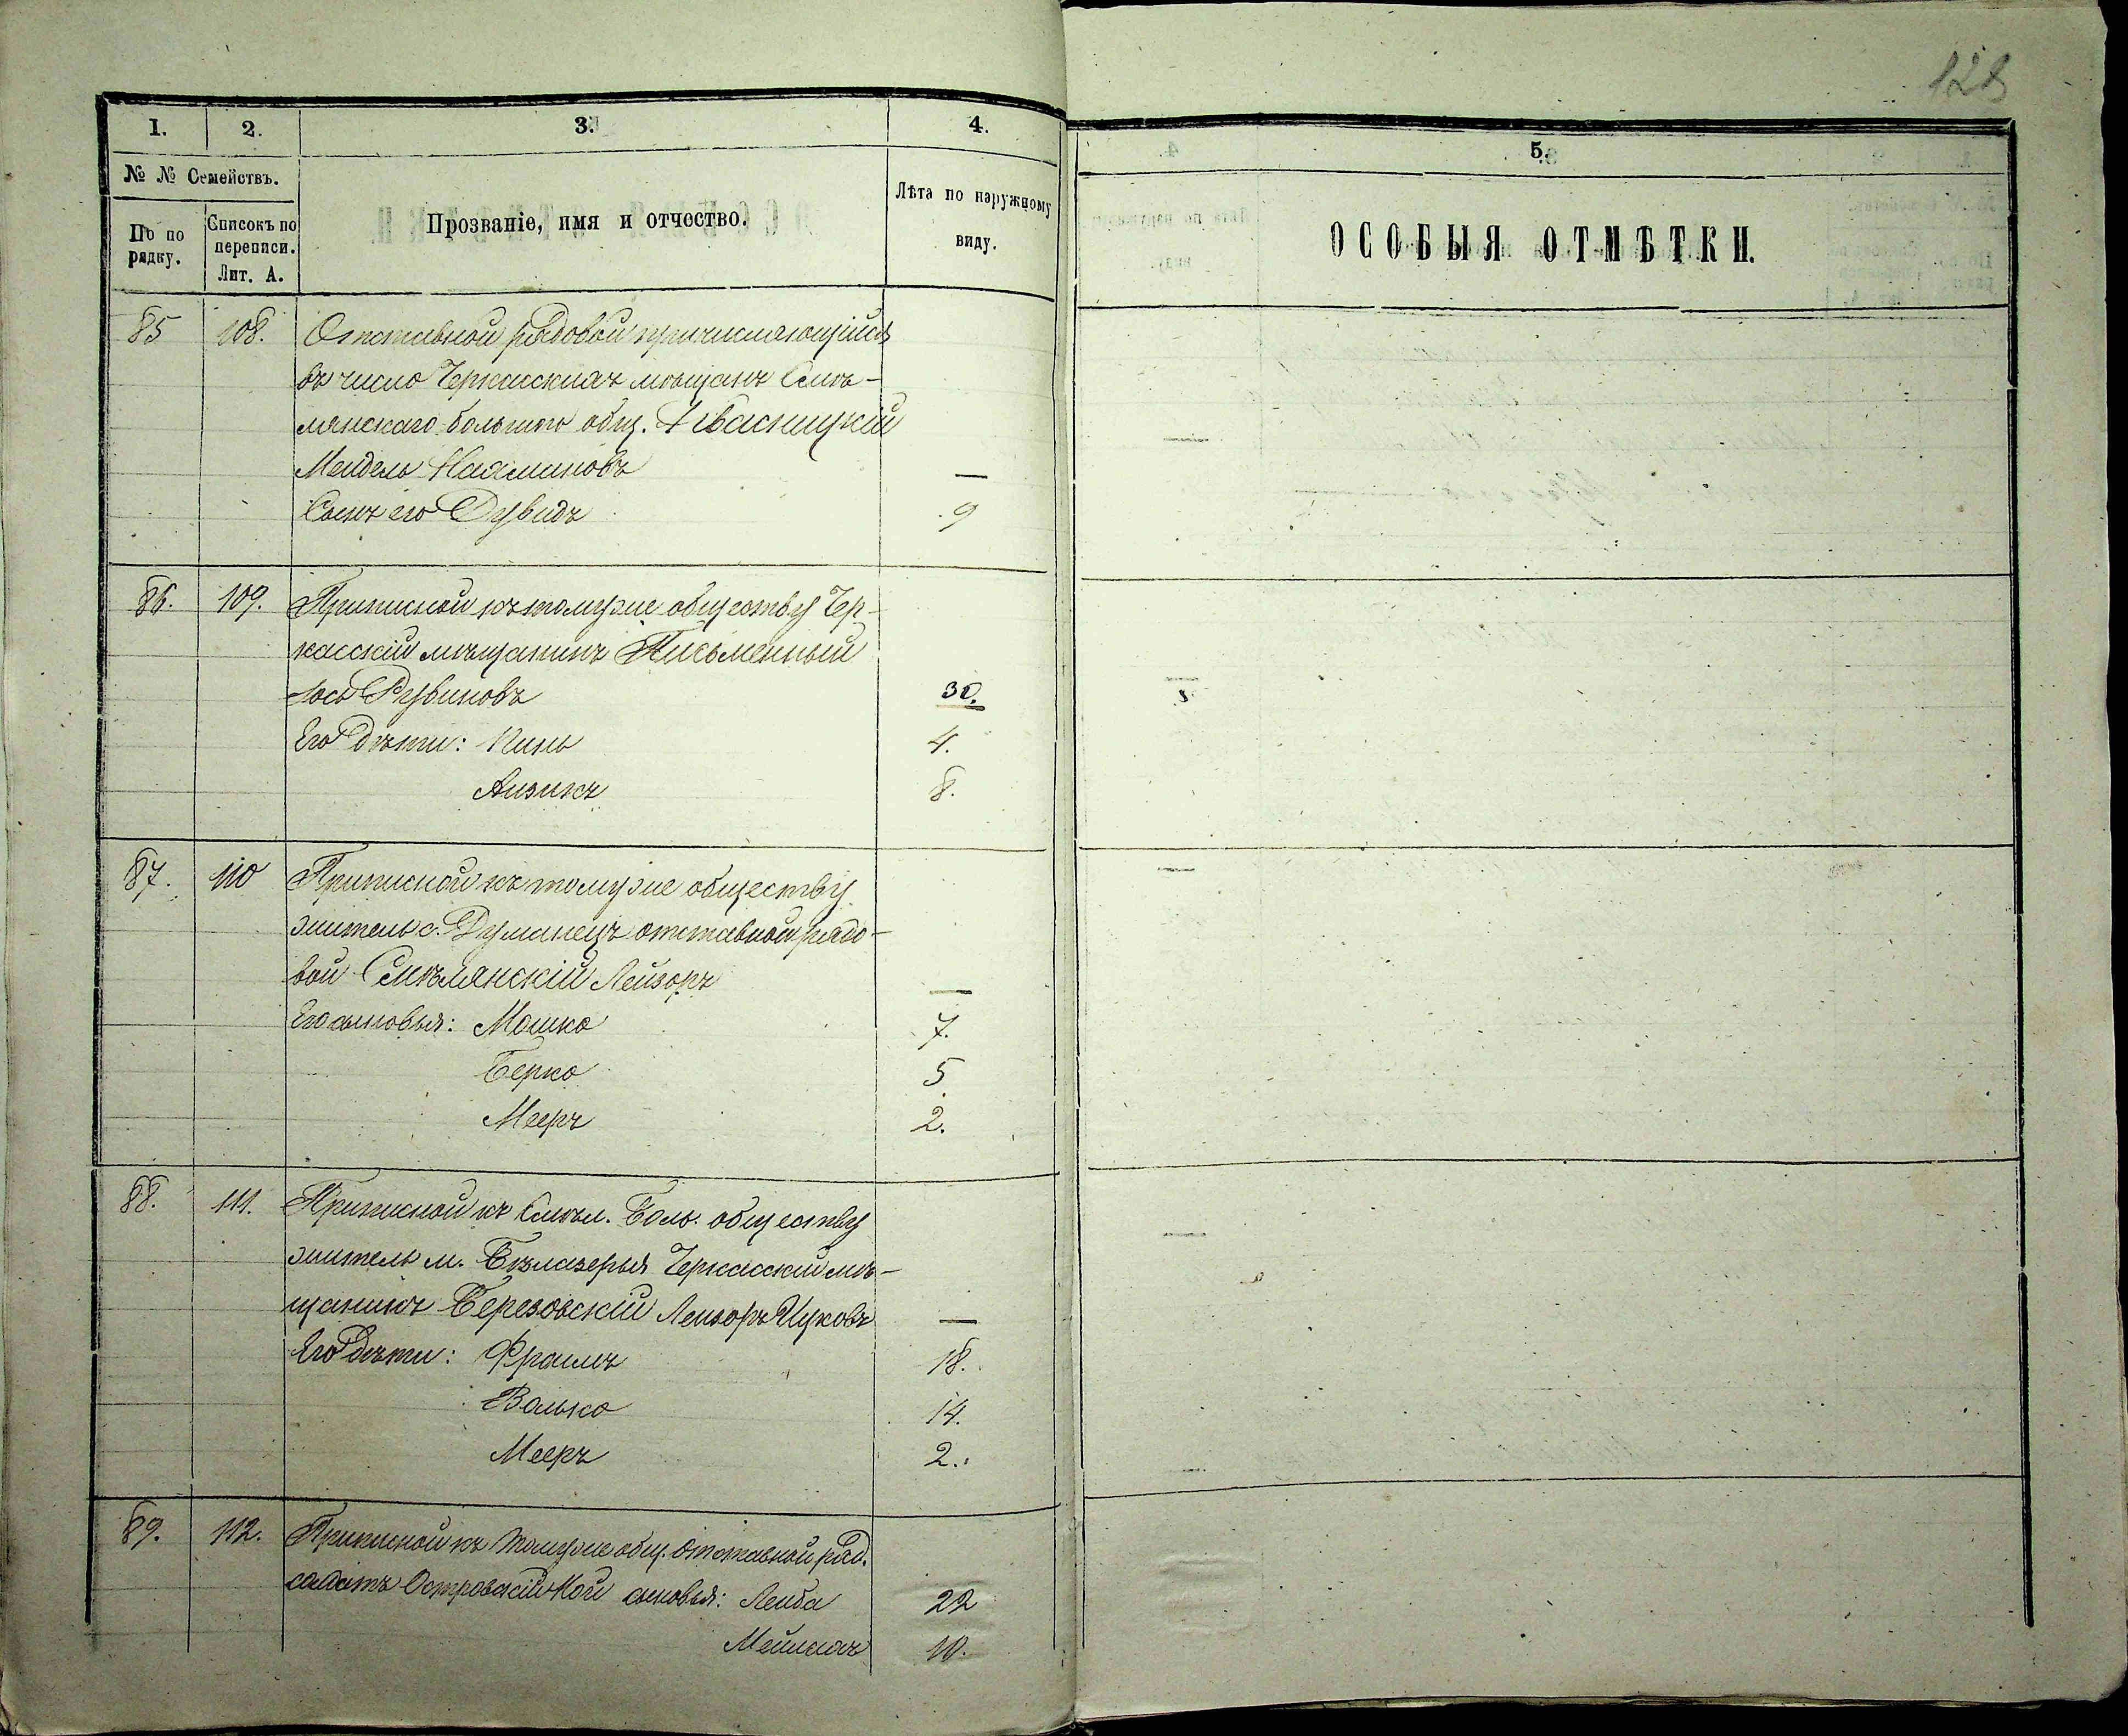 128
1. 2. 3. 4. 5.
№ № Семействъ.
По порядку.
Списокъ по переписи. Лит. А.
Прозваніе, имя и отчество.
Лѣта по наружному виду.
ОСОБЫЯ ОТМѢТКИ.
85 108. Отставной рядовой причисляющійся
въ число Черкасскихъ мѣщанъ Смѣ-
лянскаго большого общ. Квасницкій
Мендель —
Сынъ его Дувидъ 9
86. 109. Приписной къ томуже обществу Чер-
касскій мѣщанинъ Письменный
Іось Рувиновъ 30.
Его дѣти: Пинь 4.
Аизикъ 8.
87. 110 Приписной къ томуже обществу
житель с. Думанецъ отставной рядо-
вой Смѣлянскій Лейзоръ —
Его сыновья: Мошко 7.
Берко 5
Мееръ 2.
88. 111. Приписной къ Смѣл. Боль. обществу
житель м. Бѣлазерья Черкасскій мѣ-
щанинъ Березовскій Лейзоръ Ицковъ —
Его дѣти: Фроимъ 18.
Волько 14.
Мееръ 2.
89. 112. Приписной къ томуже общ. отставной ряд.
солдатъ Островскій сыновья: Лейба 22
Мейлахъ 10.